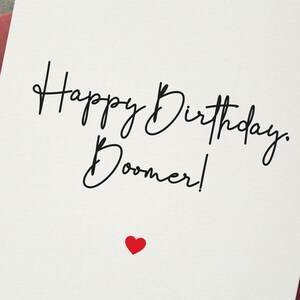 Happy Birthday,
Boomer!